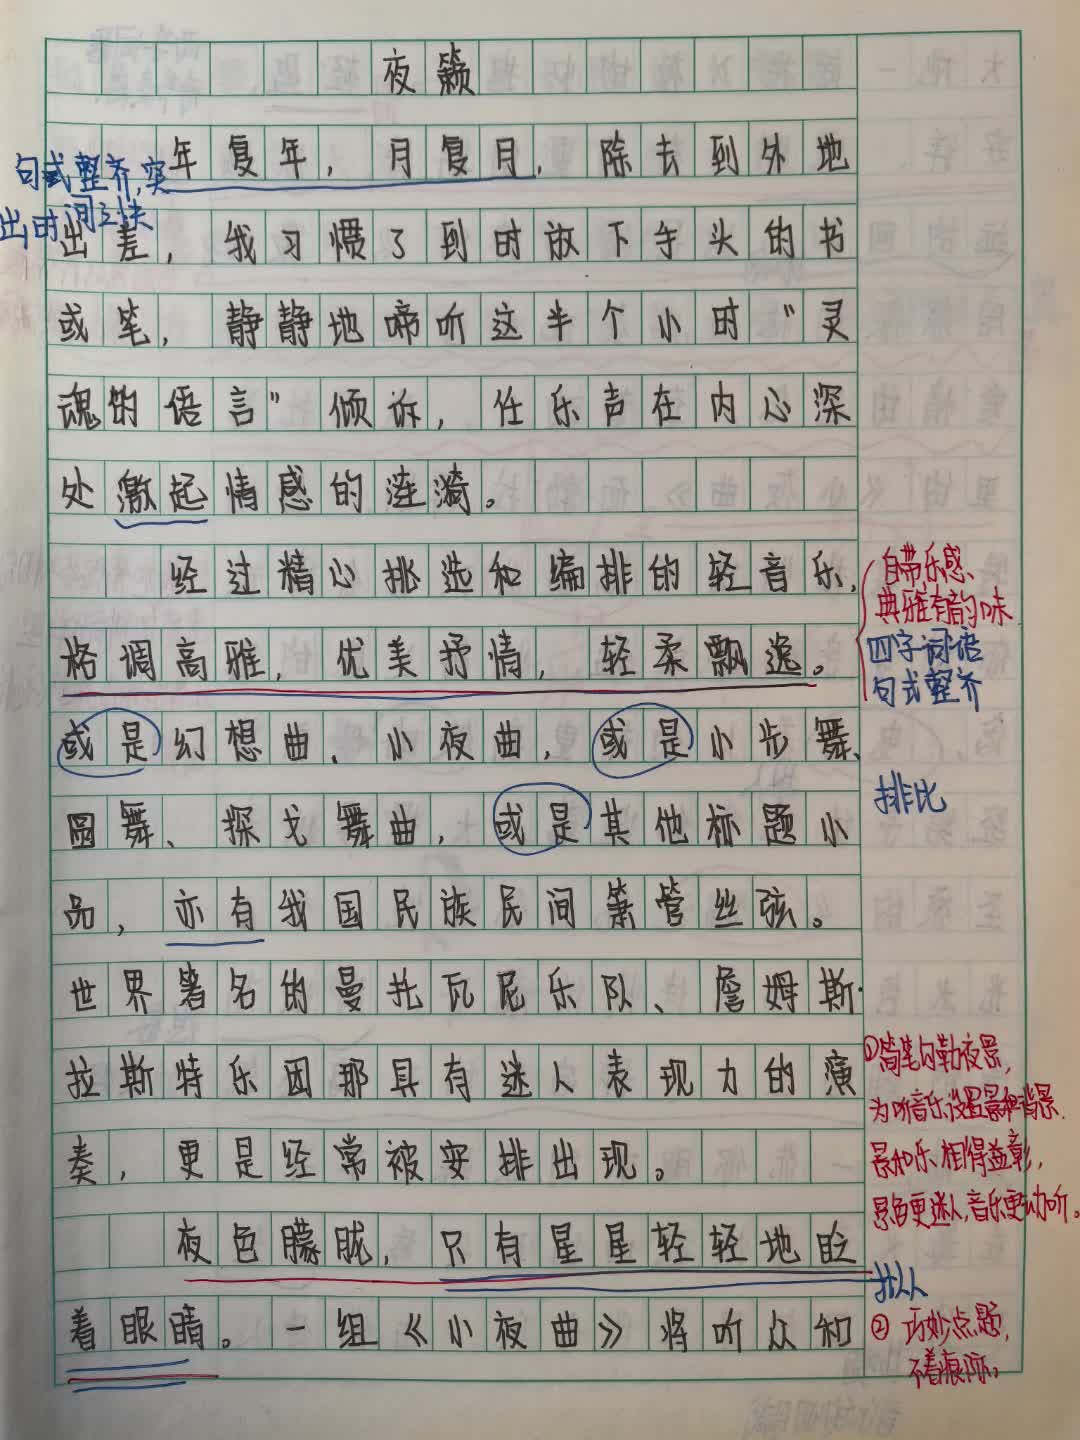 夜籁
年复年，月复月，除去到外地
句式整齐，突
出时间之快
出差，我习惯了到时放下手头的书
或笔，静静地啼听这半个小时“灵
魂的语言”倾诉，任乐声在内心深
处激起情感的涟漪。
经过精心挑选和编排的轻音乐，
自带乐感、
典雅有韵味
格调高雅，优美抒情，轻柔飘逸。
四字词语
句式整齐
或是幻想曲、小夜曲，或是小步舞、
排比
圆舞、探戈舞曲，或是其他标题小
品，亦有我国民族民间箫管丝弦。
世界著名的曼托瓦尼乐队、詹姆斯·
拉斯特乐团那具有迷人表现力的演
①简笔勾勒夜景，
为听音乐设置景和背景.
奏，更是经常被安排出现。
景和乐相得益彰，
景色更迷人，音乐更动听。
夜色朦胧，只有星星轻轻地眨
拟人
着眼睛。一组《小夜曲》将听众和
②巧妙点题，
不着痕迹。